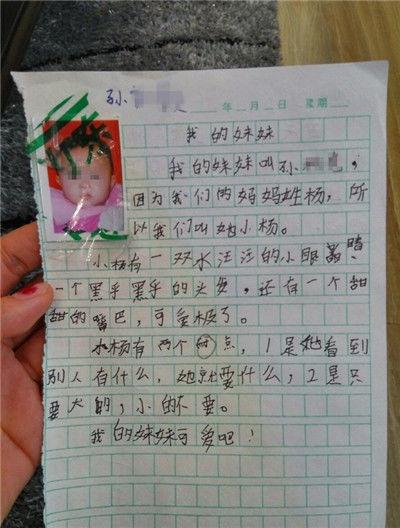 孙
年 月 日 星期
我的妹妹
我的妹妹叫孙
因为我们的妈妈姓杨，所
以我们叫她小杨。
小杨有一双水汪汪的小眼晴，
一个黑乎黑乎的头发，还有一个甜
甜的嘴巴，可爱极了。
小杨有两个点，1是她看到
别人有什么，她就要什么，2是只
要大的，小的不要。
我的妹妹可爱吧！